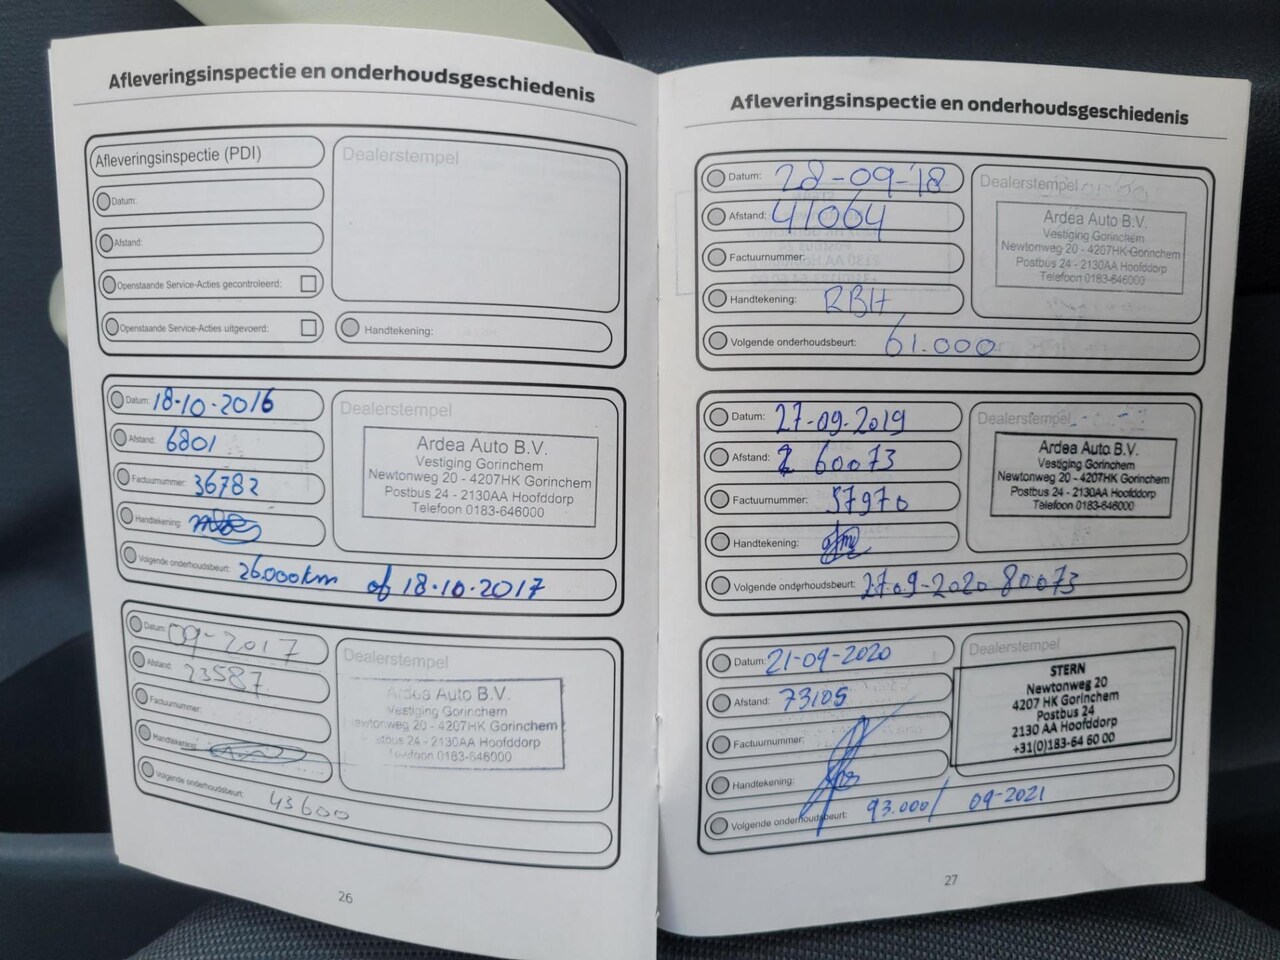 Afleveringsinspectie en onderhoudsgeschiedenis
Afleveringsinspectie (PDI)
Datum:
Afstand:
Openstaande Service-Acties gecontroleerd:
Openstaande Service-Acties uitgevoerd:
Dealerstempel
Handtekening:
Datum: 18-10-2016
Afstand: 6801
Factuurnummer: 36782
Handtekening:
Volgende onderhoudsbeurt: 26.000km of 18-10-2017
Dealerstempel
Ardea Auto B.V.
Vestiging Gorinchem
Newtonweg 20 - 4207HK Gorinchem
Postbus 24 - 2130AA Hoofddorp
Telefoon 0183-646000
Datum: 09-2017
Afstand: 23587
Factuurnummer:
Handtekening:
Volgende onderhoudsbeurt: 43600
Dealerstempel
Ardea Auto B.V.
Vestiging Gorinchem
Newtonweg 20 - 4207HK Gorinchem
Postbus 24 - 2130AA Hoofddorp
Telefoon 0183-646000
26
Afleveringsinspectie en onderhoudsgeschiedenis
Datum: 28-09-'18
Afstand: 41064
Factuurnummer:
Handtekening: RBH
Volgende onderhoudsbeurt: 61.000
Dealerstempel
Ardea Auto B.V.
Vestiging Gorinchem
Newtonweg 20 - 4207HK Gorinchem
Postbus 24 - 2130AA Hoofddorp
Telefoon 0183-646000
Datum: 27-09-2019
Afstand: 60073
Factuurnummer: 57970
Handtekening:
Volgende onderhoudsbeurt: 27-09-2020 80073
Dealerstempel
Ardea Auto B.V.
Vestiging Gorinchem
Newtonweg 20 - 4207HK Gorinchem
Postbus 24 - 2130AA Hoofddorp
Telefoon 0183-646000
Datum: 21-09-2020
Afstand: 73105
Factuurnummer:
Handtekening:
Volgende onderhoudsbeurt: 93.000/ 09-2021
Dealerstempel
STERN
Newtonweg 20
4207 HK Gorinchem
Postbus 24
2130 AA Hoofddorp
+31(0)183-64 60 00
27